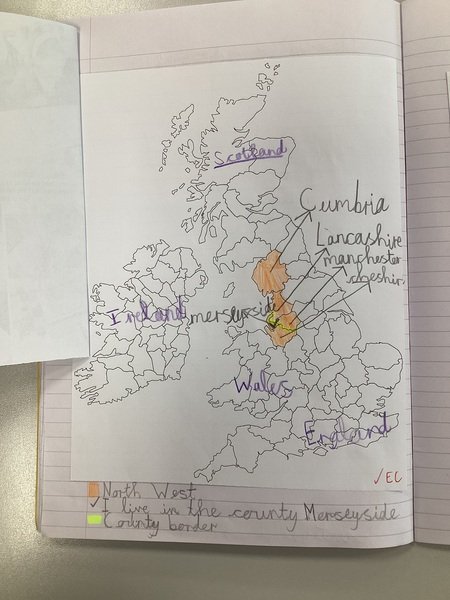 Scotland
Cumbria
Lancashire
manchester
cheshir
Ireland
merseyside
Wales
England
✓EC
North West
✓ I live in the county Merseyside
County border